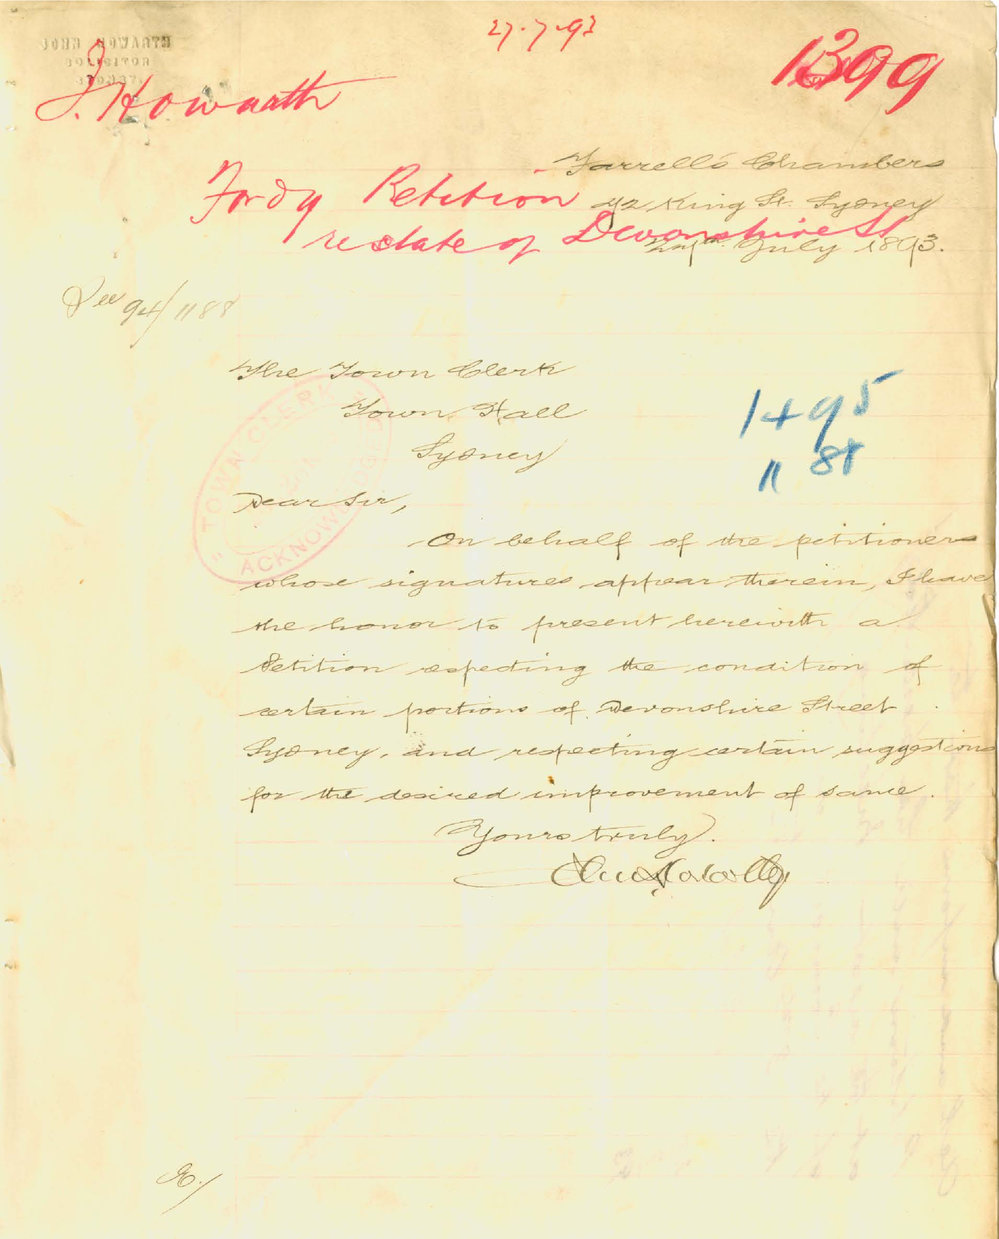 27.7.93
1399
JOHN HOWARTH
SOLICITOR
SYDNEY
J. Howarth
Farrell's Chambers
Fordg Petition
42 King St. Sydney
re state of Devonshire St
July 1893.
See 94/1188
The Town Clerk
Town Hall
Sydney
1495
1188
TOWN CLERK
ACKNOWLEDGED
Dear Sir,
On behalf of the petitioners
whose signatures appear therein, I have
the honor to present herewith a
Petition respecting the condition of
certain portions of Devonshire Street
Sydney, and respecting certain suggestions
for the desired improvement of same.
Yours truly.